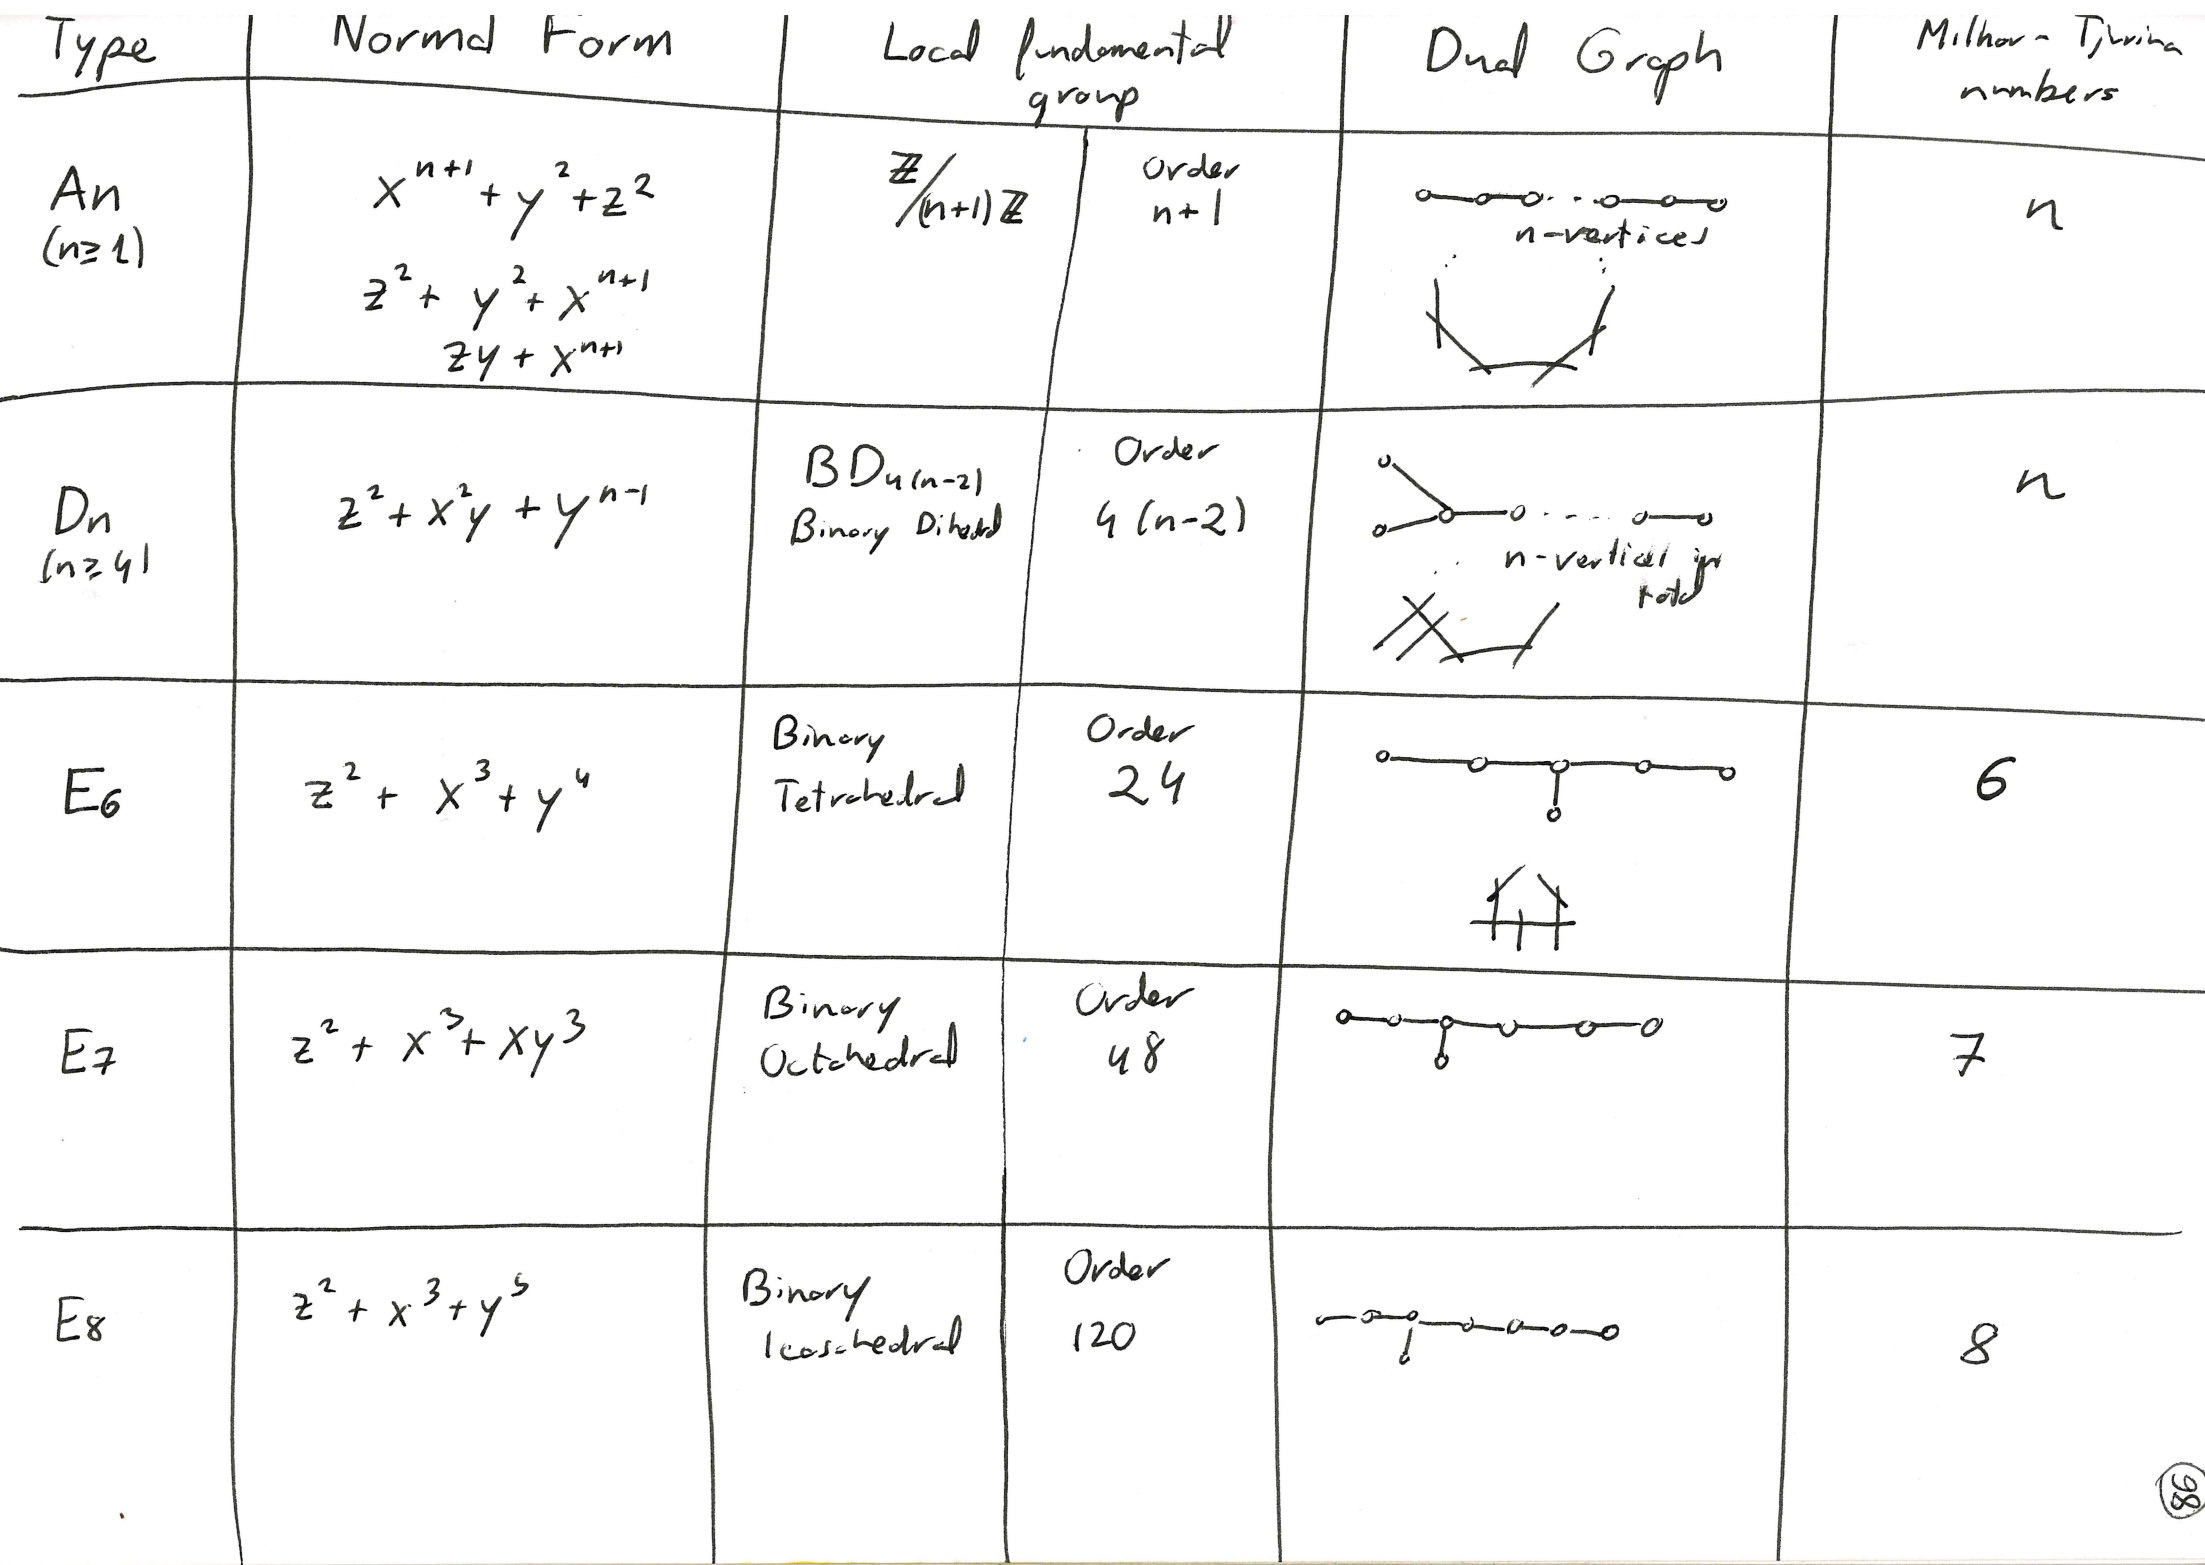 Type Normal Form Local fundamental Dual Graph Milnor - Tjurina
group numbers
An
(n≥1)
x^{n+1} + y^2 + z^2
z^2 + y^2 + x^{n+1}
zy + x^{n+1}
ℤ/(n+1)ℤ
Order
n+1
n-vertices
n
Dn
(n≥4)
z^2 + x^2y + y^{n-1}
BD_{4(n-2)}
Binary Dihedral
Order
4(n-2)
n-vertices in
total
n
E6
z^2 + x^3 + y^4
Binary
Tetrahedral
Order
24
6
E7
z^2 + x^3 + xy^3
Binary
Octahedral
Order
48
7
E8
z^2 + x^3 + y^5
Binary
Icosahedral
Order
120
8
98